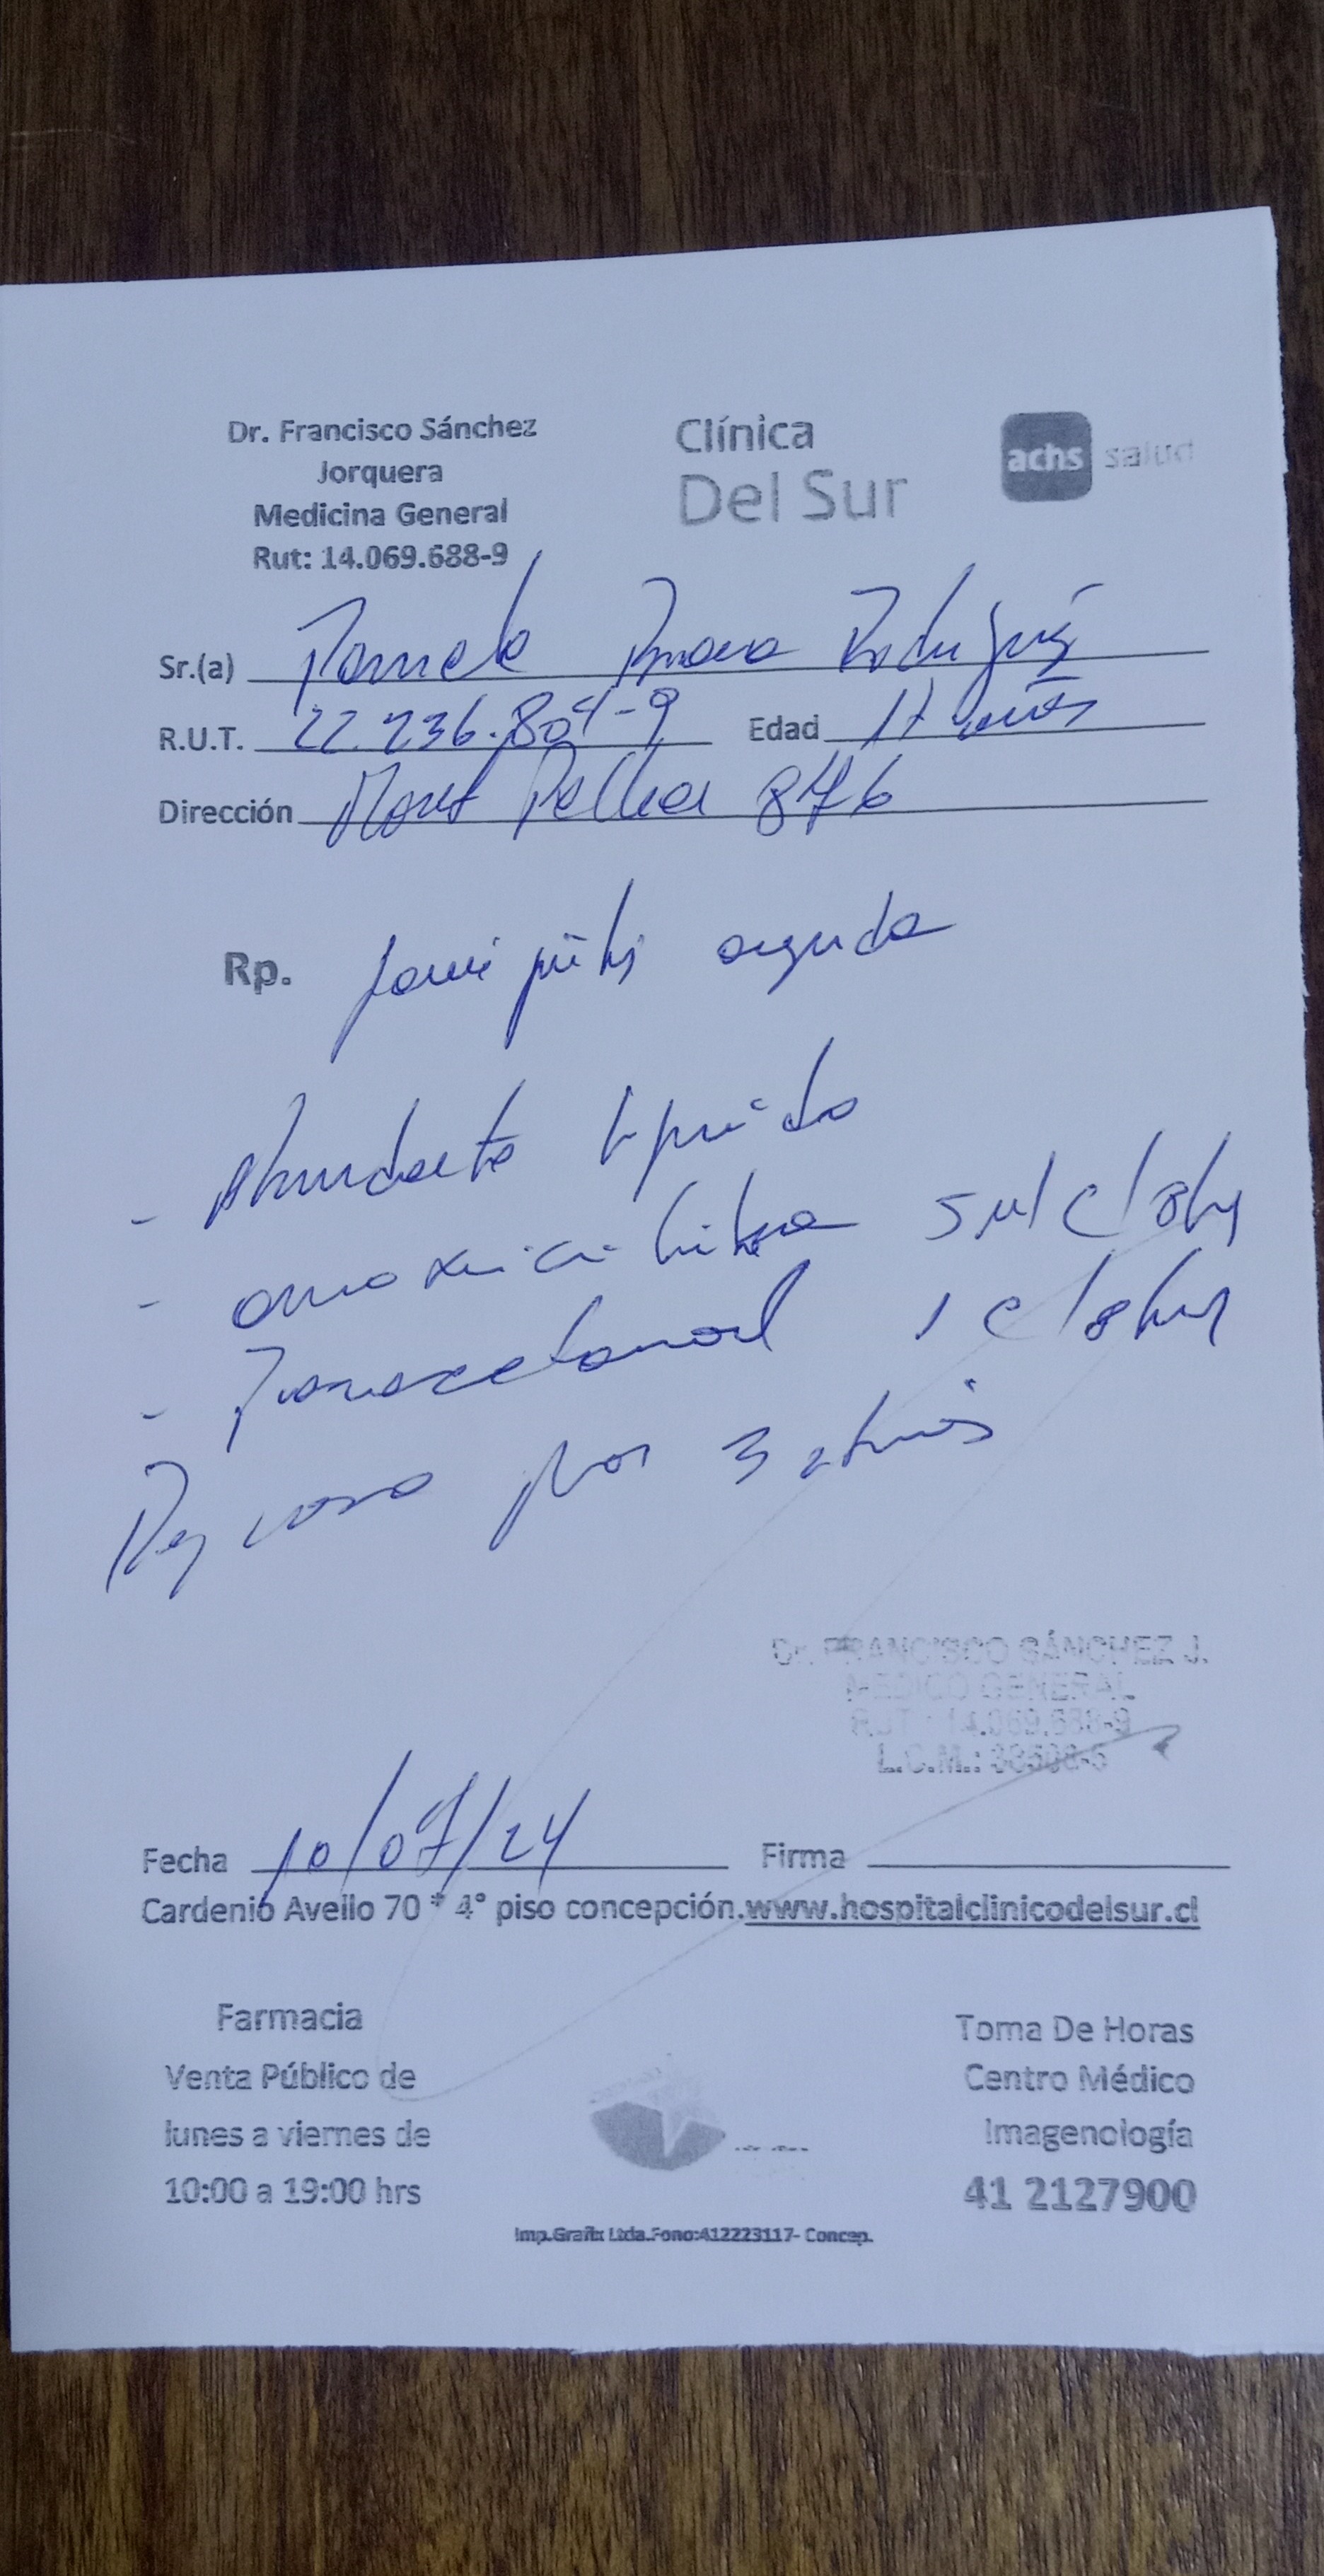 Dr. Francisco Sánchez
Jorquera
Medicina General
Rut: 14.069.688-9
Clínica
Del Sur
achs salud
Sr.(a) Pamela Rodríguez
R.U.T. 22.236.804-9 Edad 17 años
Dirección Mont Pellier 876
Rp. faringitis aguda
- Abundante líquido
- amoxicilina 5 ml c/8hrs
- Paracetamol 1 c/8hrs
Reposo por 3 días
Dr. FRANCISCO SÁNCHEZ J.
MEDICO GENERAL
RUT.: 14.069.688-9
L.C.M.:
Fecha 10/07/24 Firma
Cardenio Avello 70 * 4° piso concepción.www.hospitalclinicodelsur.cl
Farmacia
Venta Público de
lunes a viernes de
10:00 a 19:00 hrs
Toma De Horas
Centro Médico
Imagenología
41 2127900
Imp.Grafix Ltda.Fono:412223117- Concep.